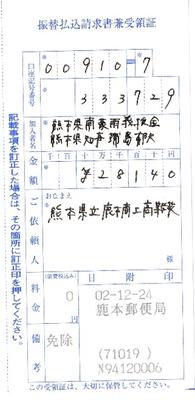 振替払込請求書兼受領証
口座記号番号
00910=7
333729
加入者名
熊本県南豪雨義援金
熊本県知事 蒲島郁夫
金額
千 百 十 万 千 百 十 円
¥28140
ご依頼人
おなまえ
熊本県立鹿本商工高等学校
様
料金
(消費税込み)
0
円
備考
免除
日附印
02-12-24
鹿本郵便局
(71019)
N94120006
記載事項を訂正した場合は、その箇所に訂正印を押してください。
この受領証は、大切に保管してください。